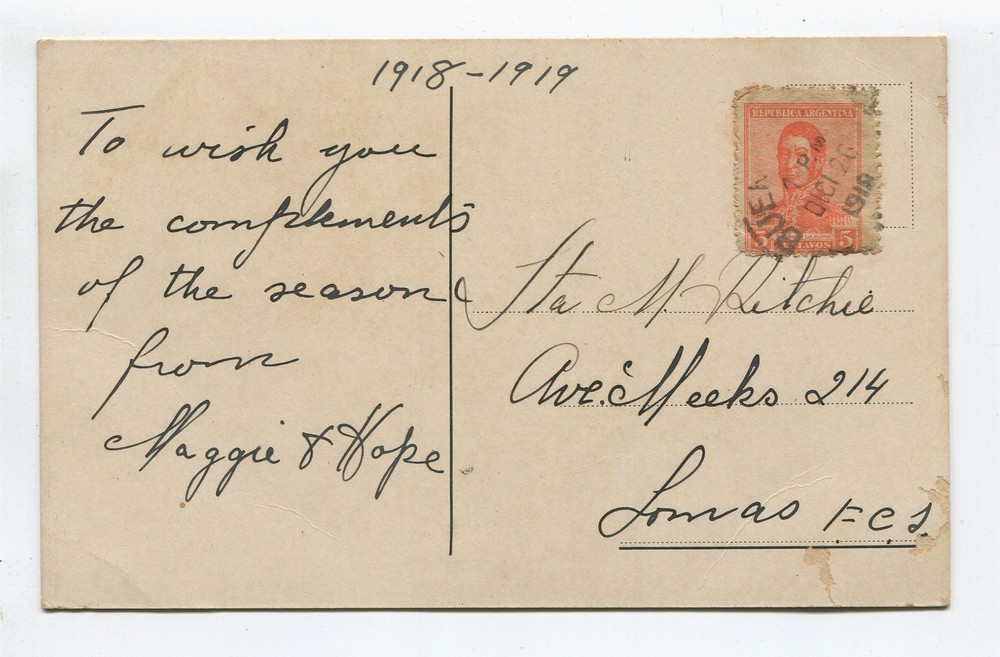 1918-1919
To wish you
the complements
of the season
from
Maggie & Hope
REPUBLICA ARGENTINA
5 CENTAVOS 5
2 PM
DICI 26
1918
Sta M. Ritchie
Ave. Meeks 214
Lomas F.C.S.